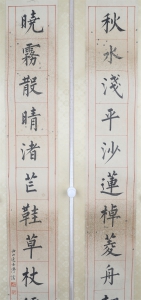 秋水淺平沙蓮棹菱舟
曉霧散晴渚芒鞋草杖